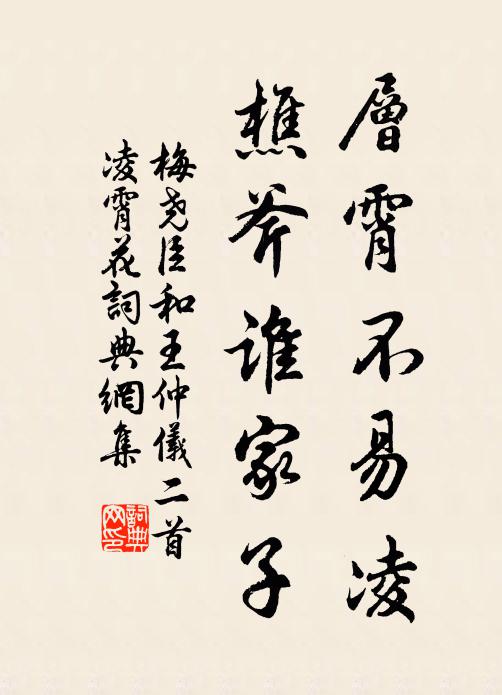 層霄不易凌
樵斧誰家子
梅尧臣和王仲儀二首
凌霄花詞典網集
詞典网印